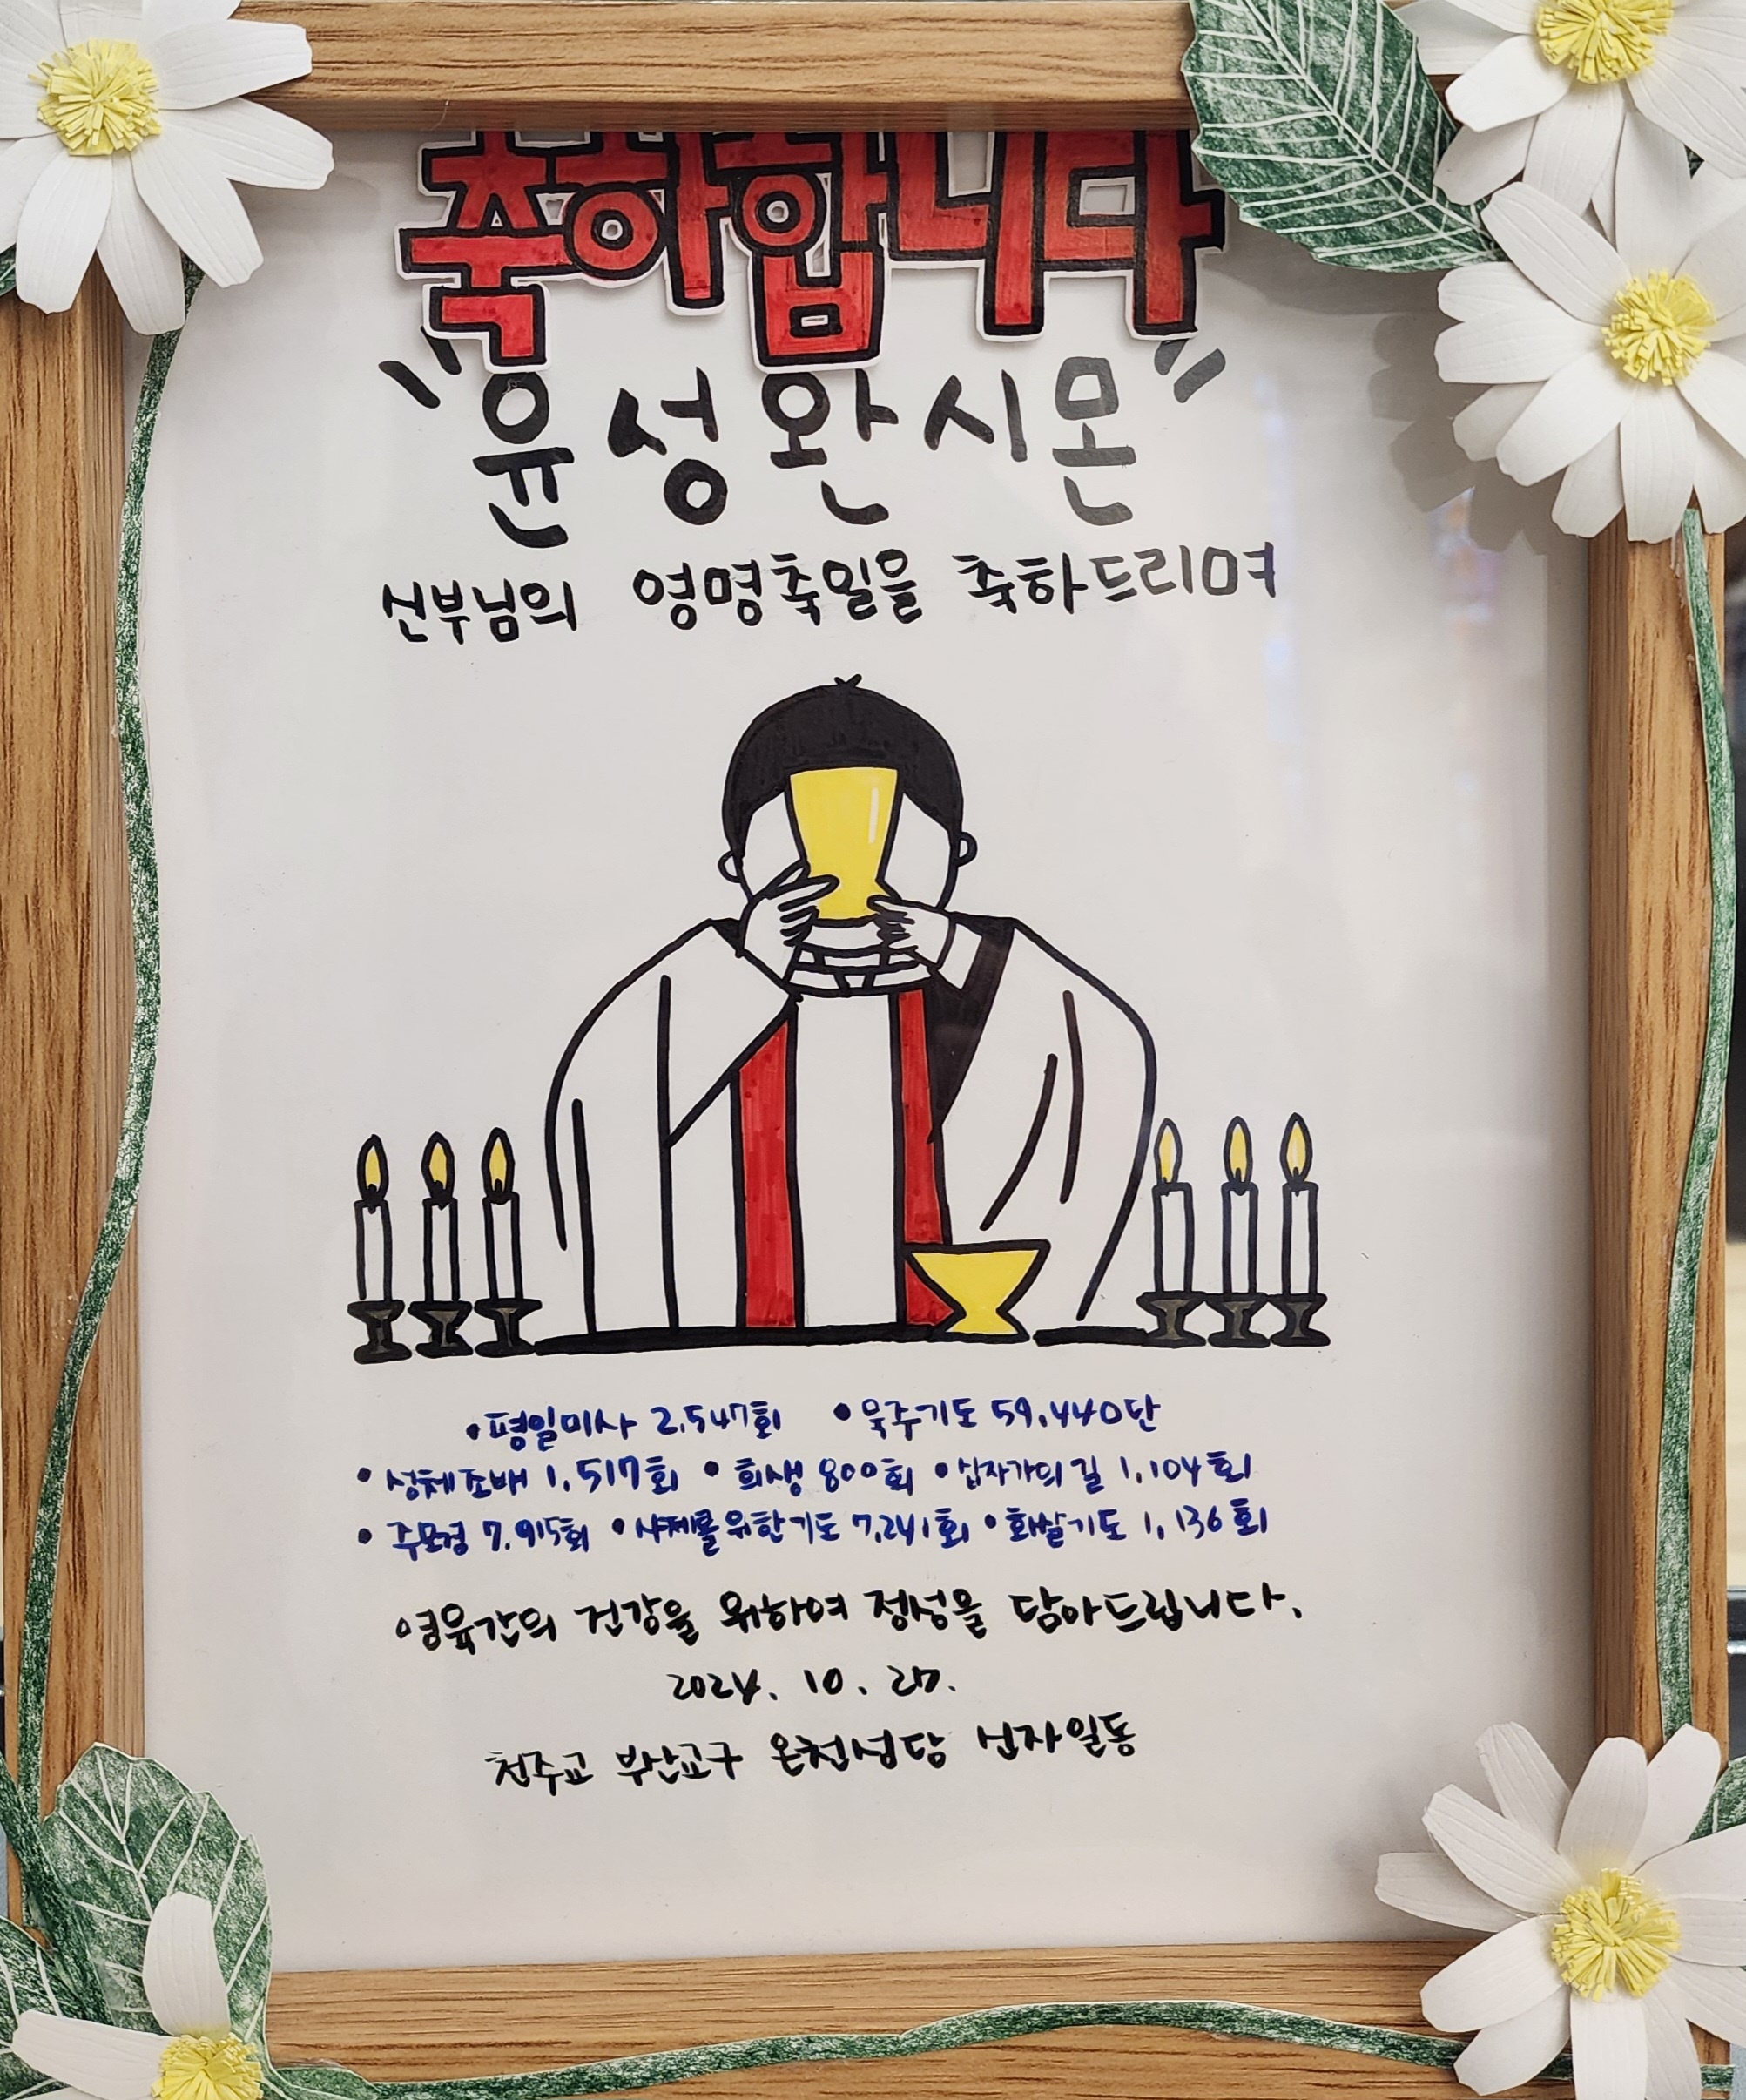 축하합니다
"윤성완시몬"
신부님의 영명축일을 축하드리며
•평일미사 2,547회 •묵주기도 59,440단
•성체조배 1,517회 •희생 800회 •십자가의 길 1,104회
•주모경 7,915회 •사제를위한기도 7,241회 •화살기도 1,136회
영육간의 건강을 위하여 정성을 담아드립니다.
2024. 10. 27.
천주교 부산교구 온천성당 신자일동